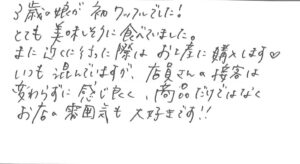 3歳の娘が初ワッフルでした!
とても美味しそうに食べていました。
また近くに行った際はお土産に購入します♡
いつも混んでいますが、店員さんの接客は
変わらずに感じ良く、商品だけではなく
お店の雰囲気も大好きです!!